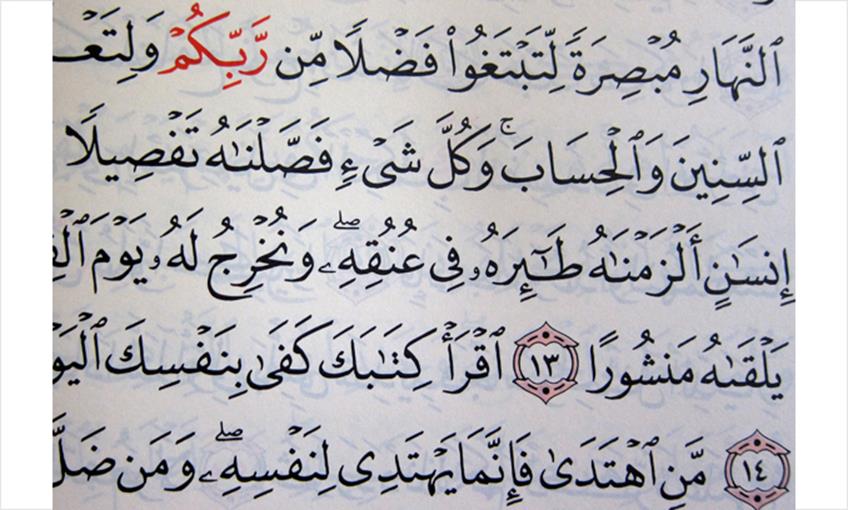 ٱلنَّهَارِ مُبۡصِرَةٗ لِّتَبۡتَغُواْ فَضۡلٗا مِّن رَّبِّكُمۡ
ٱلسِّنِينَ وَٱلۡحِسَابَۚ وَكُلَّ شَيۡءٖ فَصَّلۡنَٰهُ تَفۡصِيلٗا
إِنسَٰنٍ أَلۡزَمۡنَٰهُ طَٰٓئِرَهُۥ فِي عُنُقِهِۦۖ وَنُخۡرِجُ لَهُۥ يَوۡمَ
يَلۡقَىٰهُ مَنشُورًا ١٣ ٱقۡرَأۡ كِتَٰبَكَ كَفَىٰ بِنَفۡسِكَ
١٤ مَّنِ ٱهۡتَدَىٰ فَإِنَّمَا يَهۡتَدِي لِنَفۡسِهِۦۖ وَمَن ضَلَّ